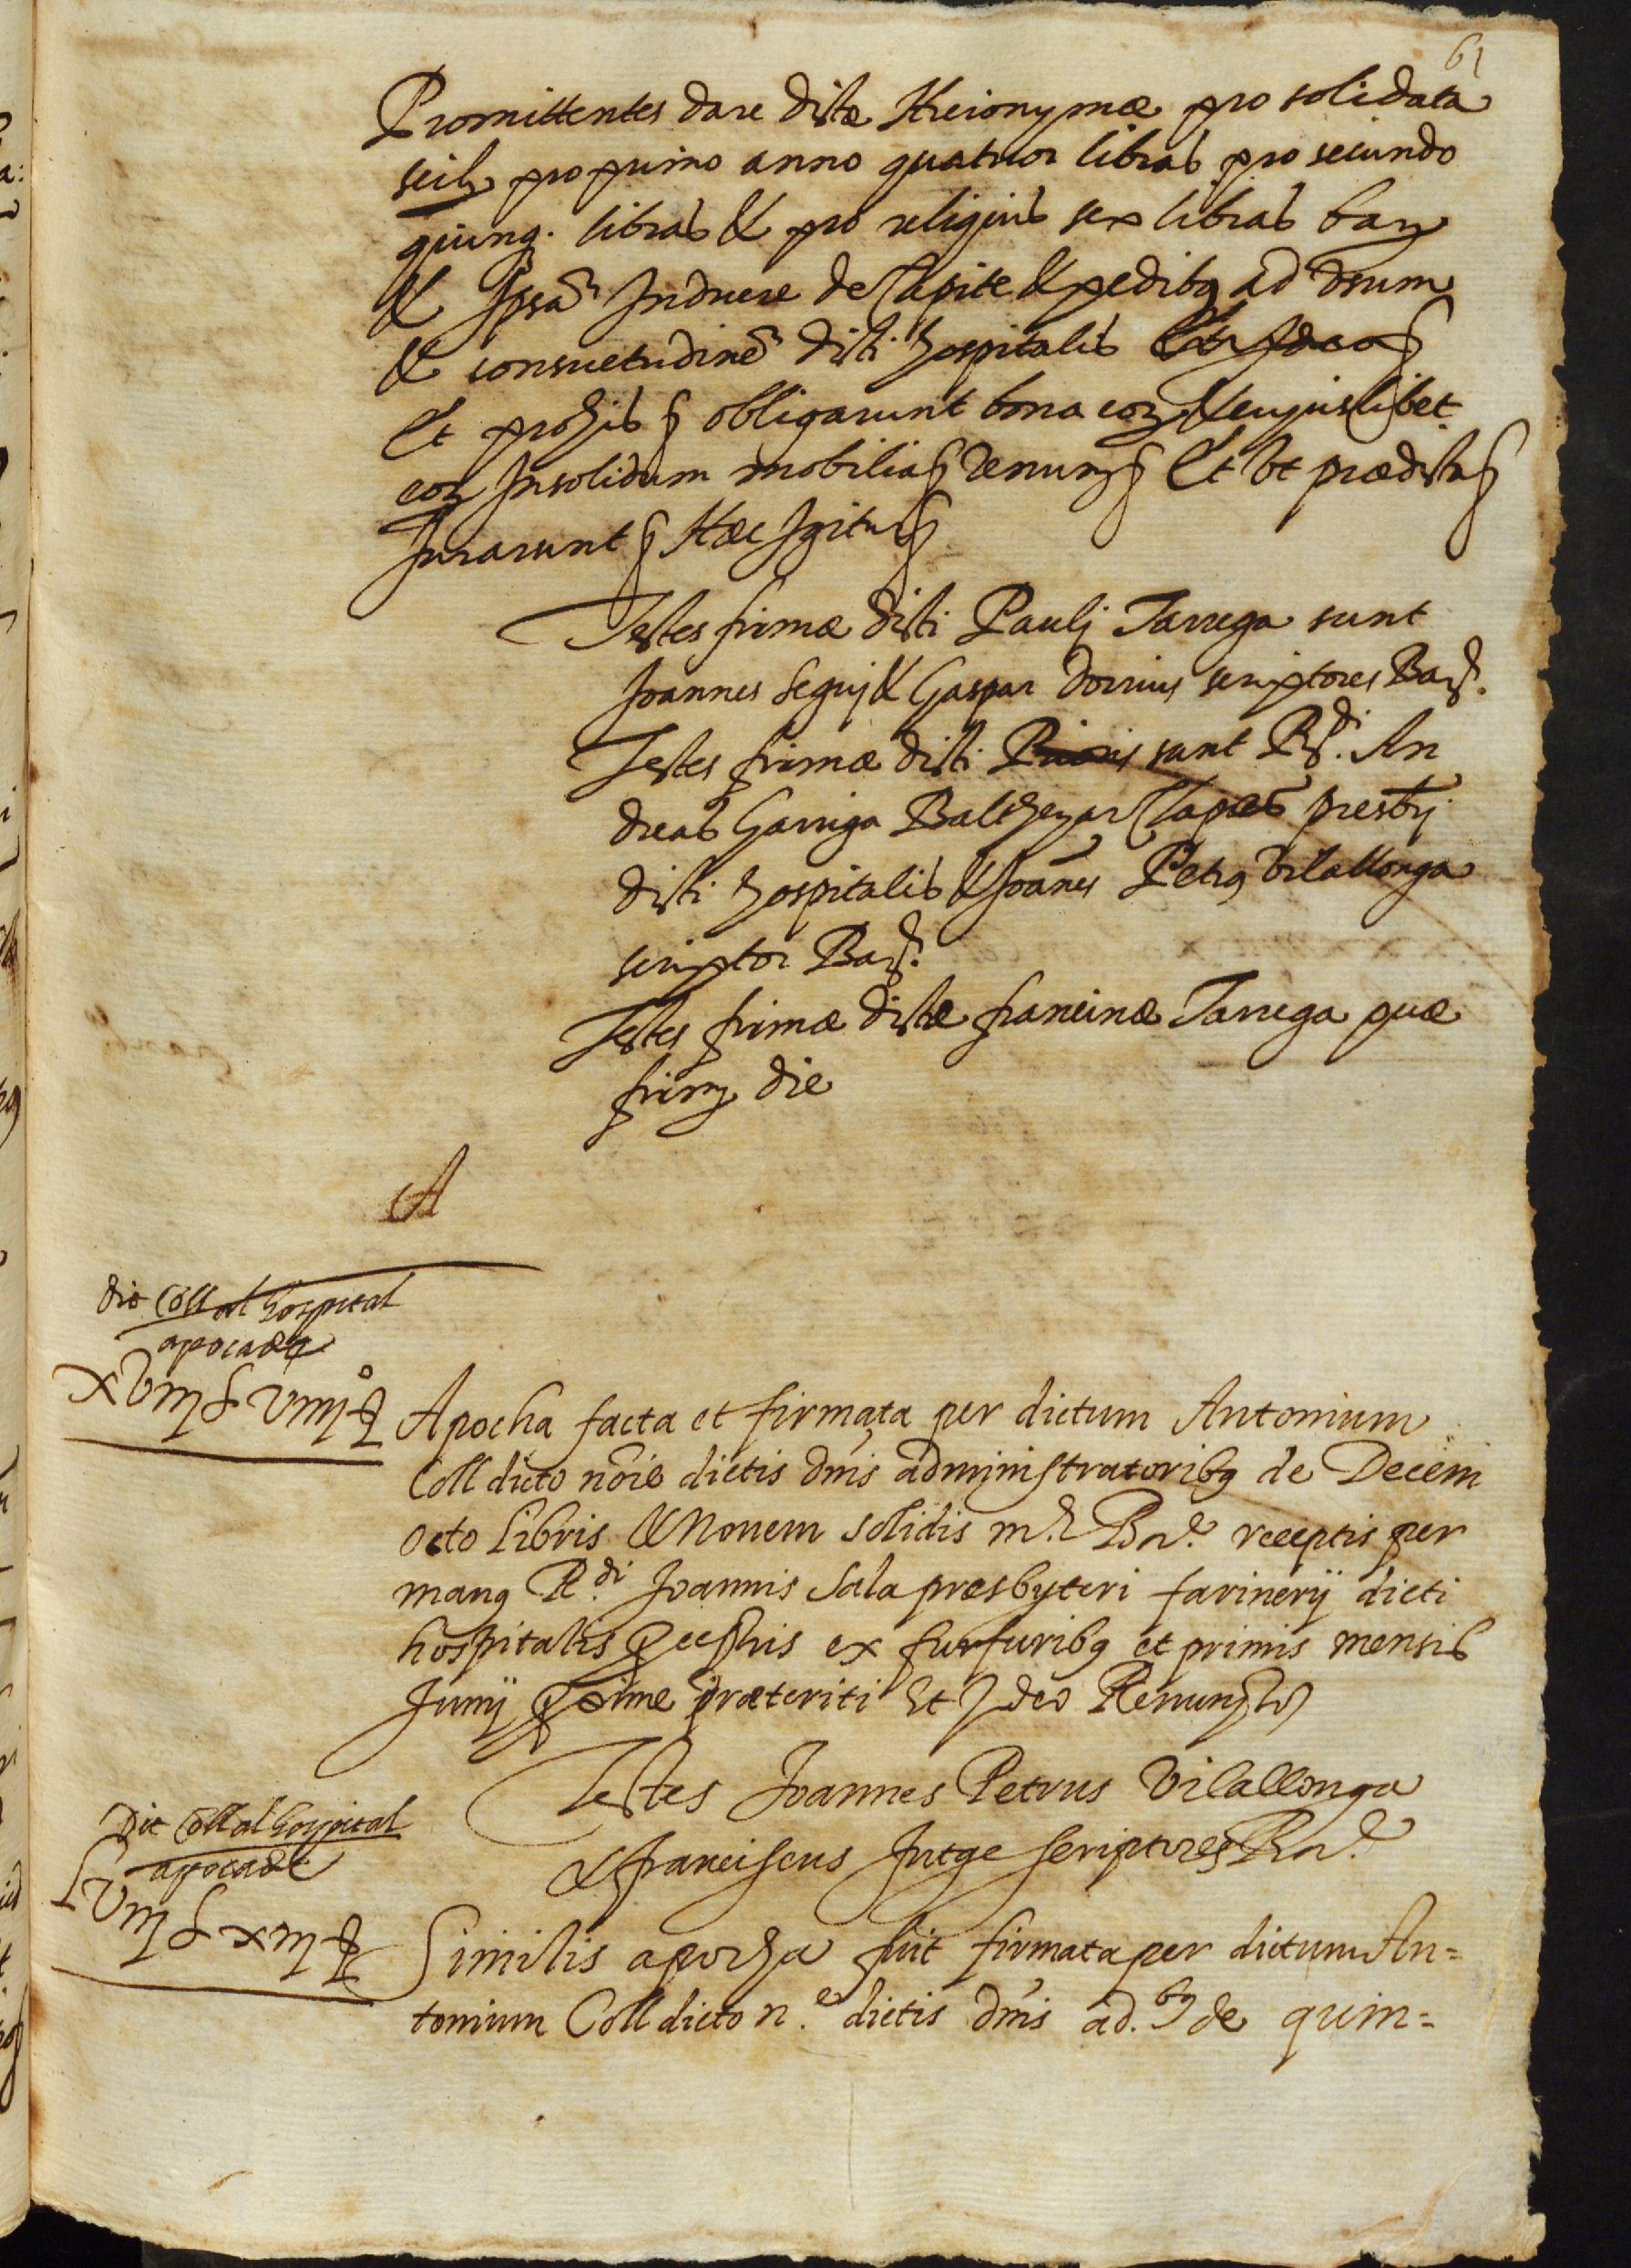 61
Promittentes dare dictæ Hieronymæ pro solidata
scilz pro primo anno quatuor libras pro secundo
quinq. libras & pro reliquis sex libras barz
& Ipsā Induere de Capite & pedibq ad vsum
& consuetudinē dicti hospitalis
Et pro his obligarunt bona eorz & cujuslibet
eorz Insolidum mobilia Renunz Et vt prædicta
Jurarunt Hæc Igitur
Testes firmæ dicti Paulj Tarrega sunt
Joannes Seguj & Gaspar Dorrius scriptores Bar.
Testes firmæ dicti Prioris sunt R.di An
dreas Garriga Balthezar Clapes presbri
dicti hospitalis & Joānes Petrq Vilallonga
scriptor Bar.
Testes firmæ dictæ francinæ Tarrega quæ
firmz die
A
die Coll al hospital
apoca de
xviiij £ viiij ß
Apocha facta et firmata per dictum Antonium
Coll dicto nōie dictis dnīs administratoribq de Decem
octo Libris & Novem solidis m. Bar. receptis per
manq R.di Joannis Sala presbyteri farinerij dicti
hospitalis ex furfuribq et primis mensis
Junij proxime præteriti Et Ideo Renun
Testes Joannes Petrus Vilallonga
& franciscus Jutge scriptores Bar.
Die Coll al hospital
apoca de
Similis apocha fuit firmata per dictum An=
tonium Coll dicto n.e dictis dnīs ad.bq de quin=